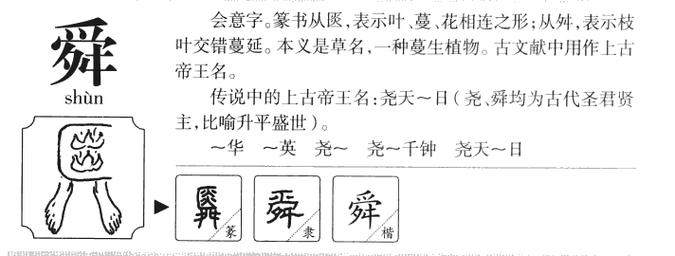 舜
shùn
会意字。篆书从匧,表示叶、蔓、花相连之形;从舛,表示枝
叶交错蔓延。本义是草名,一种蔓生植物。古文献中用作上古
帝王名。
传说中的上古帝王名:尧天~日(尧、舜均为古代圣君贤
主,比喻升平盛世)。
~华 ~英 尧~ 尧~千钟 尧天~日
舜 篆 舜 隶 舜 楷